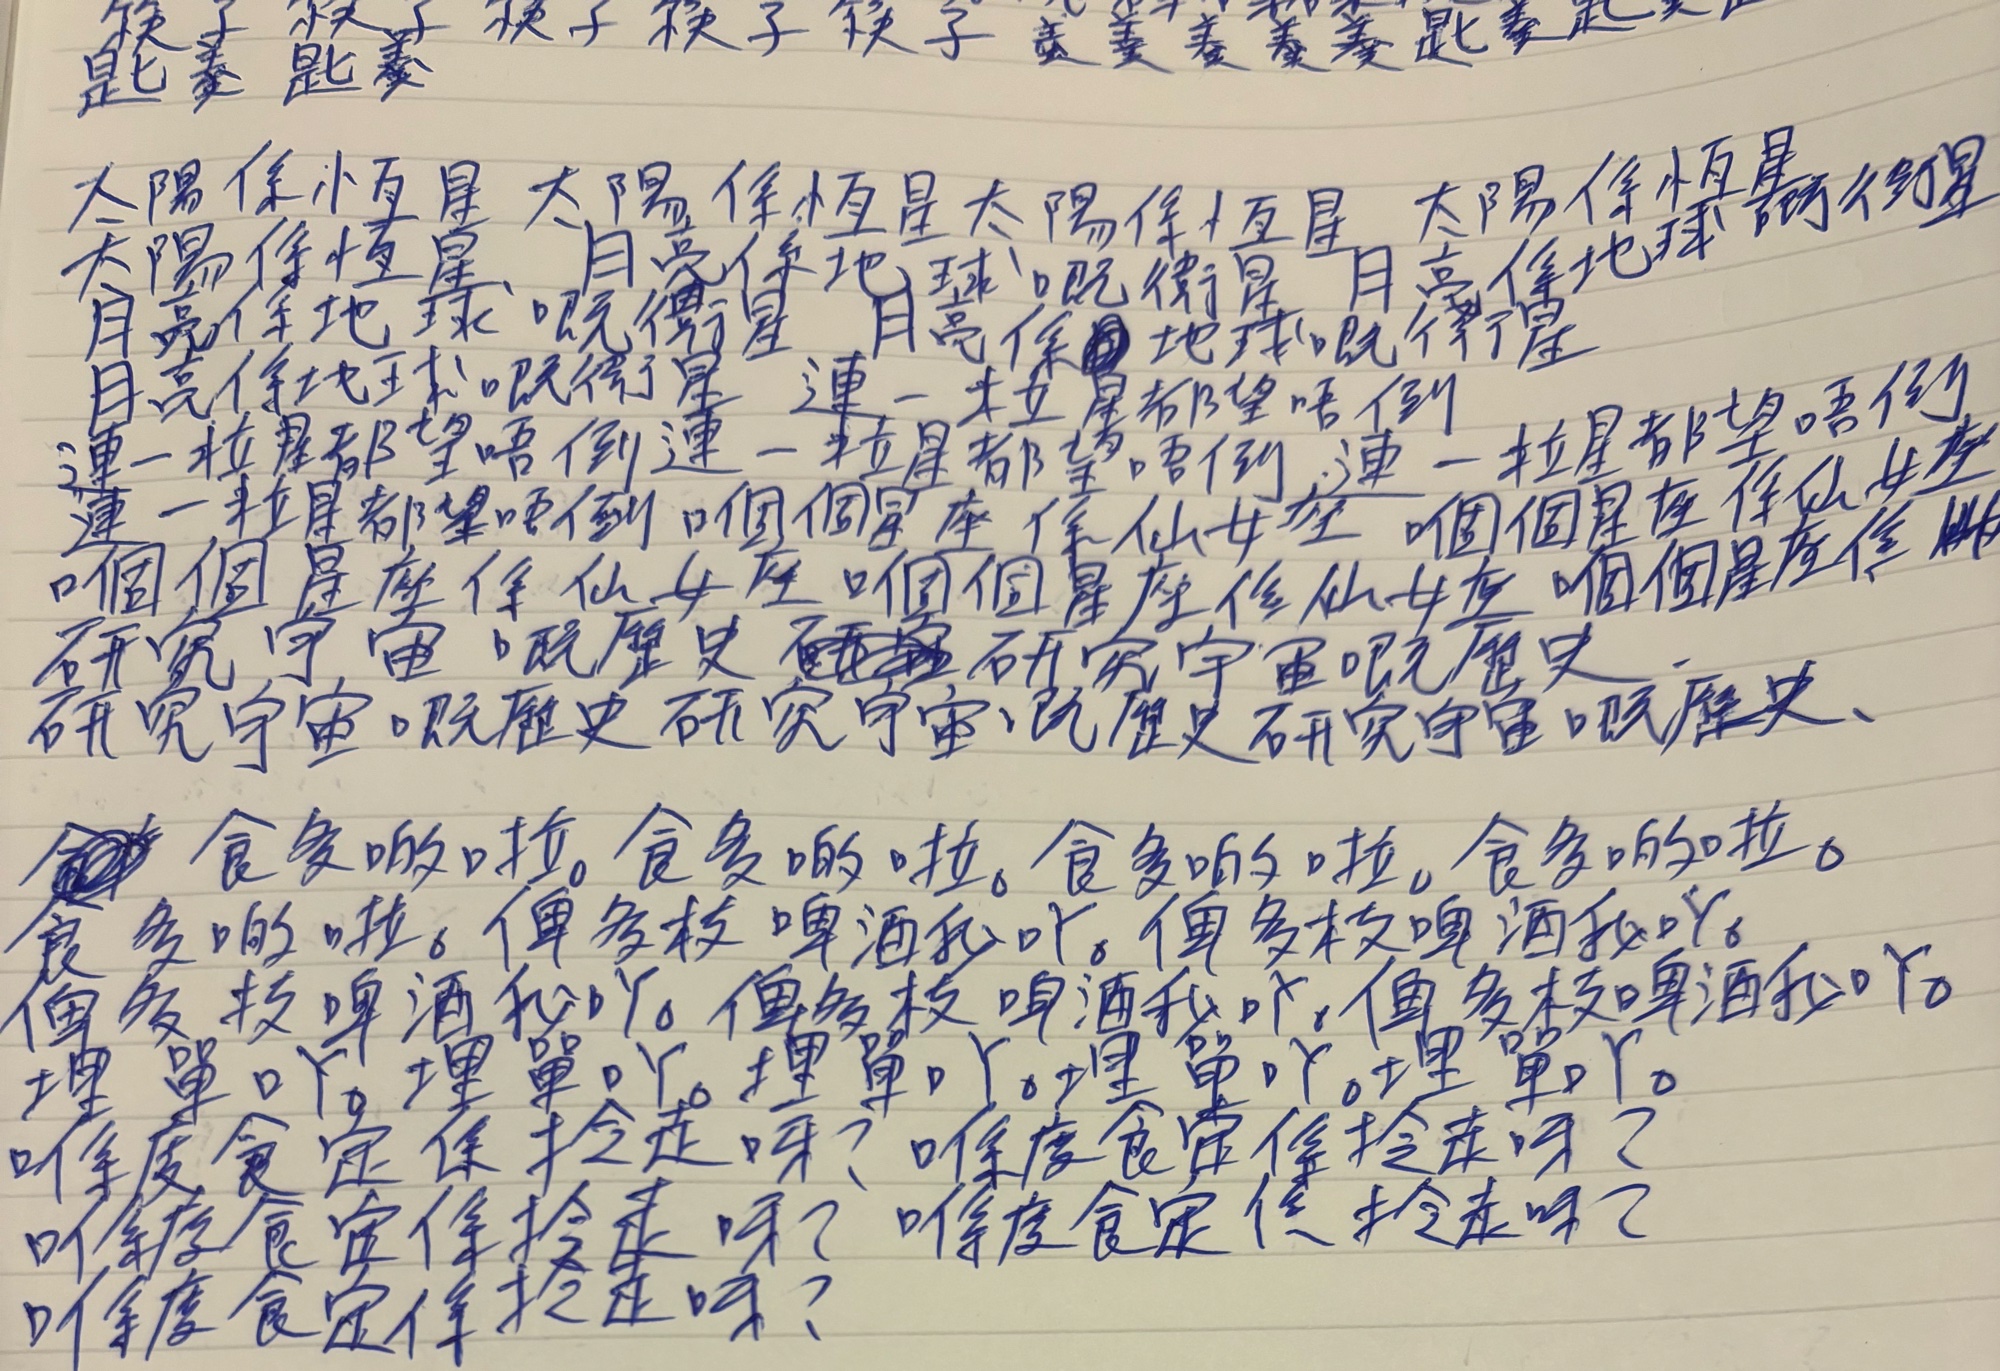 筷子 筷子 筷子 筷子 筷子 羹羹羹羹羹匙羹匙羹
匙羹 匙羹
太陽係恆星 太陽係恆星太陽係恆星 太陽係恆星
太陽係恆星、月亮係地球嘅衛星 月亮係地球嘅衛星
月亮係地球嘅衛星 月亮係地球嘅衛星
月亮係地球嘅衛星 連一粒星都望唔倒
連一粒星都望唔倒連一粒星都望唔倒 連一粒星都望唔倒
連一粒星都望唔倒 嗰個星座係仙女座 嗰個星座係仙女座
嗰個星座係仙女座 嗰個星座係仙女座 嗰個星座係
研究宇宙嘅歷史 研究宇宙嘅歷史
研究宇宙嘅歷史 研究宇宙嘅歷史 研究宇宙嘅歷史、
食多啲啦。食多啲啦。食多啲啦。食多啲啦。
食多啲啦。俾多枝啤酒我吖。俾多枝啤酒我吖。
俾多枝啤酒我吖。俾多枝啤酒我吖。俾多枝啤酒我吖。
埋單吖。埋單吖。埋單吖。埋單吖。埋單吖。
喺度食定係拎走呀？喺度食定係拎走呀？
喺度食定係拎走呀？喺度食定係拎走呀？
喺度食定係拎走呀？